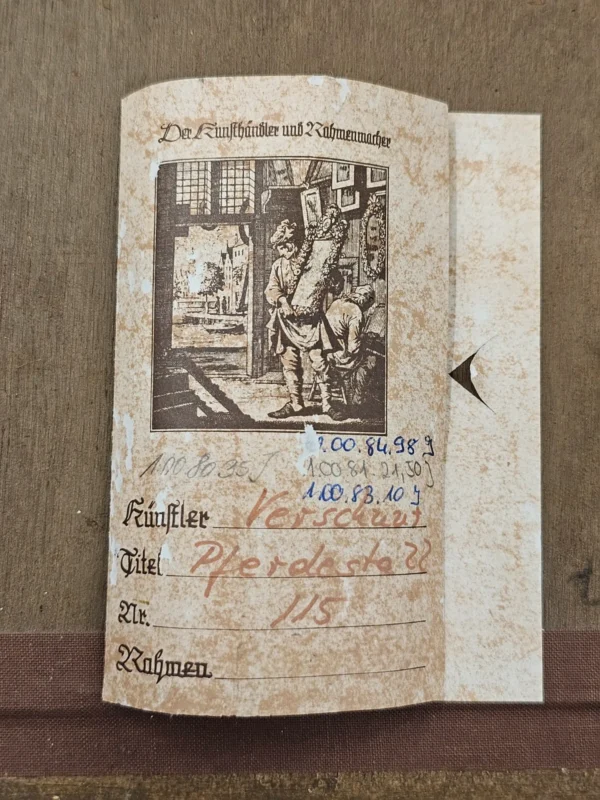 Der Kunsthändler und Rahmenmacher
1.00.84.98 J
1.00 80 95 J 1.00 81 21,50 J
1.00.83.10 J
Künstler Verschuur
Titel Pferdestall
Nr. 115
Rahmen